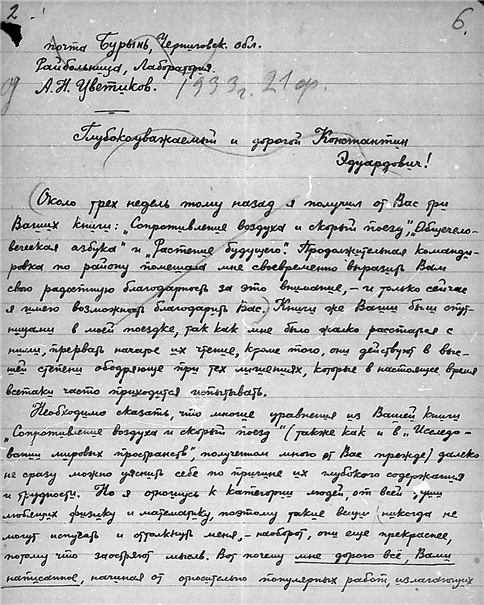 2 6.
почта Бурынь, Черниговск. обл.
Райбольница, Лаборатория.
А. Н. Цветиков. 1933г. 21 ф.
Глубокоуважаемый и дорогой Константин
Эдуардович!
(Около трех недель тому назад я получил от Вас три
Ваших книги: „Сопротивление воздуха и скорый поезд", „Общечело-
веческая азбука" и „Растение будущего". Продолжительная команди-
ровка по району помешала мне своевременно выразить Вам
свою радостную благодарность за это внимание, – и только сейчас
я имею возможность благодарить Вас.) Книги же Ваши были спут-
ницами в моей поездке, так как мне было жалко расстаться с
ними, прервать начатое их чтение, кроме того, они действуют в выс-
шей степени ободряюще при тех лишениях, которые в настоящее время
всетаки часто приходится испытывать.
Необходимо сказать, что многие уравнения из Вашей книги
„Сопротивление воздуха и скорый поезд" (также как и в „Исследо-
вании мировых пространств", полученном мною от Вас прежде) далеко
не сразу можно уяснить себе по причине их глубокого содержания
и трудности. Но я отношусь к категории людей, от всей души
любящих физику и математику, поэтому такие вещи никогда не
могут испугать и оттолкнуть меня, – наоборот, они еще прекраснее,
потому что заостряют мысль. Вот почему мне дорого всё, Вами
написанное, начиная от относительно популярных работ, излагающих